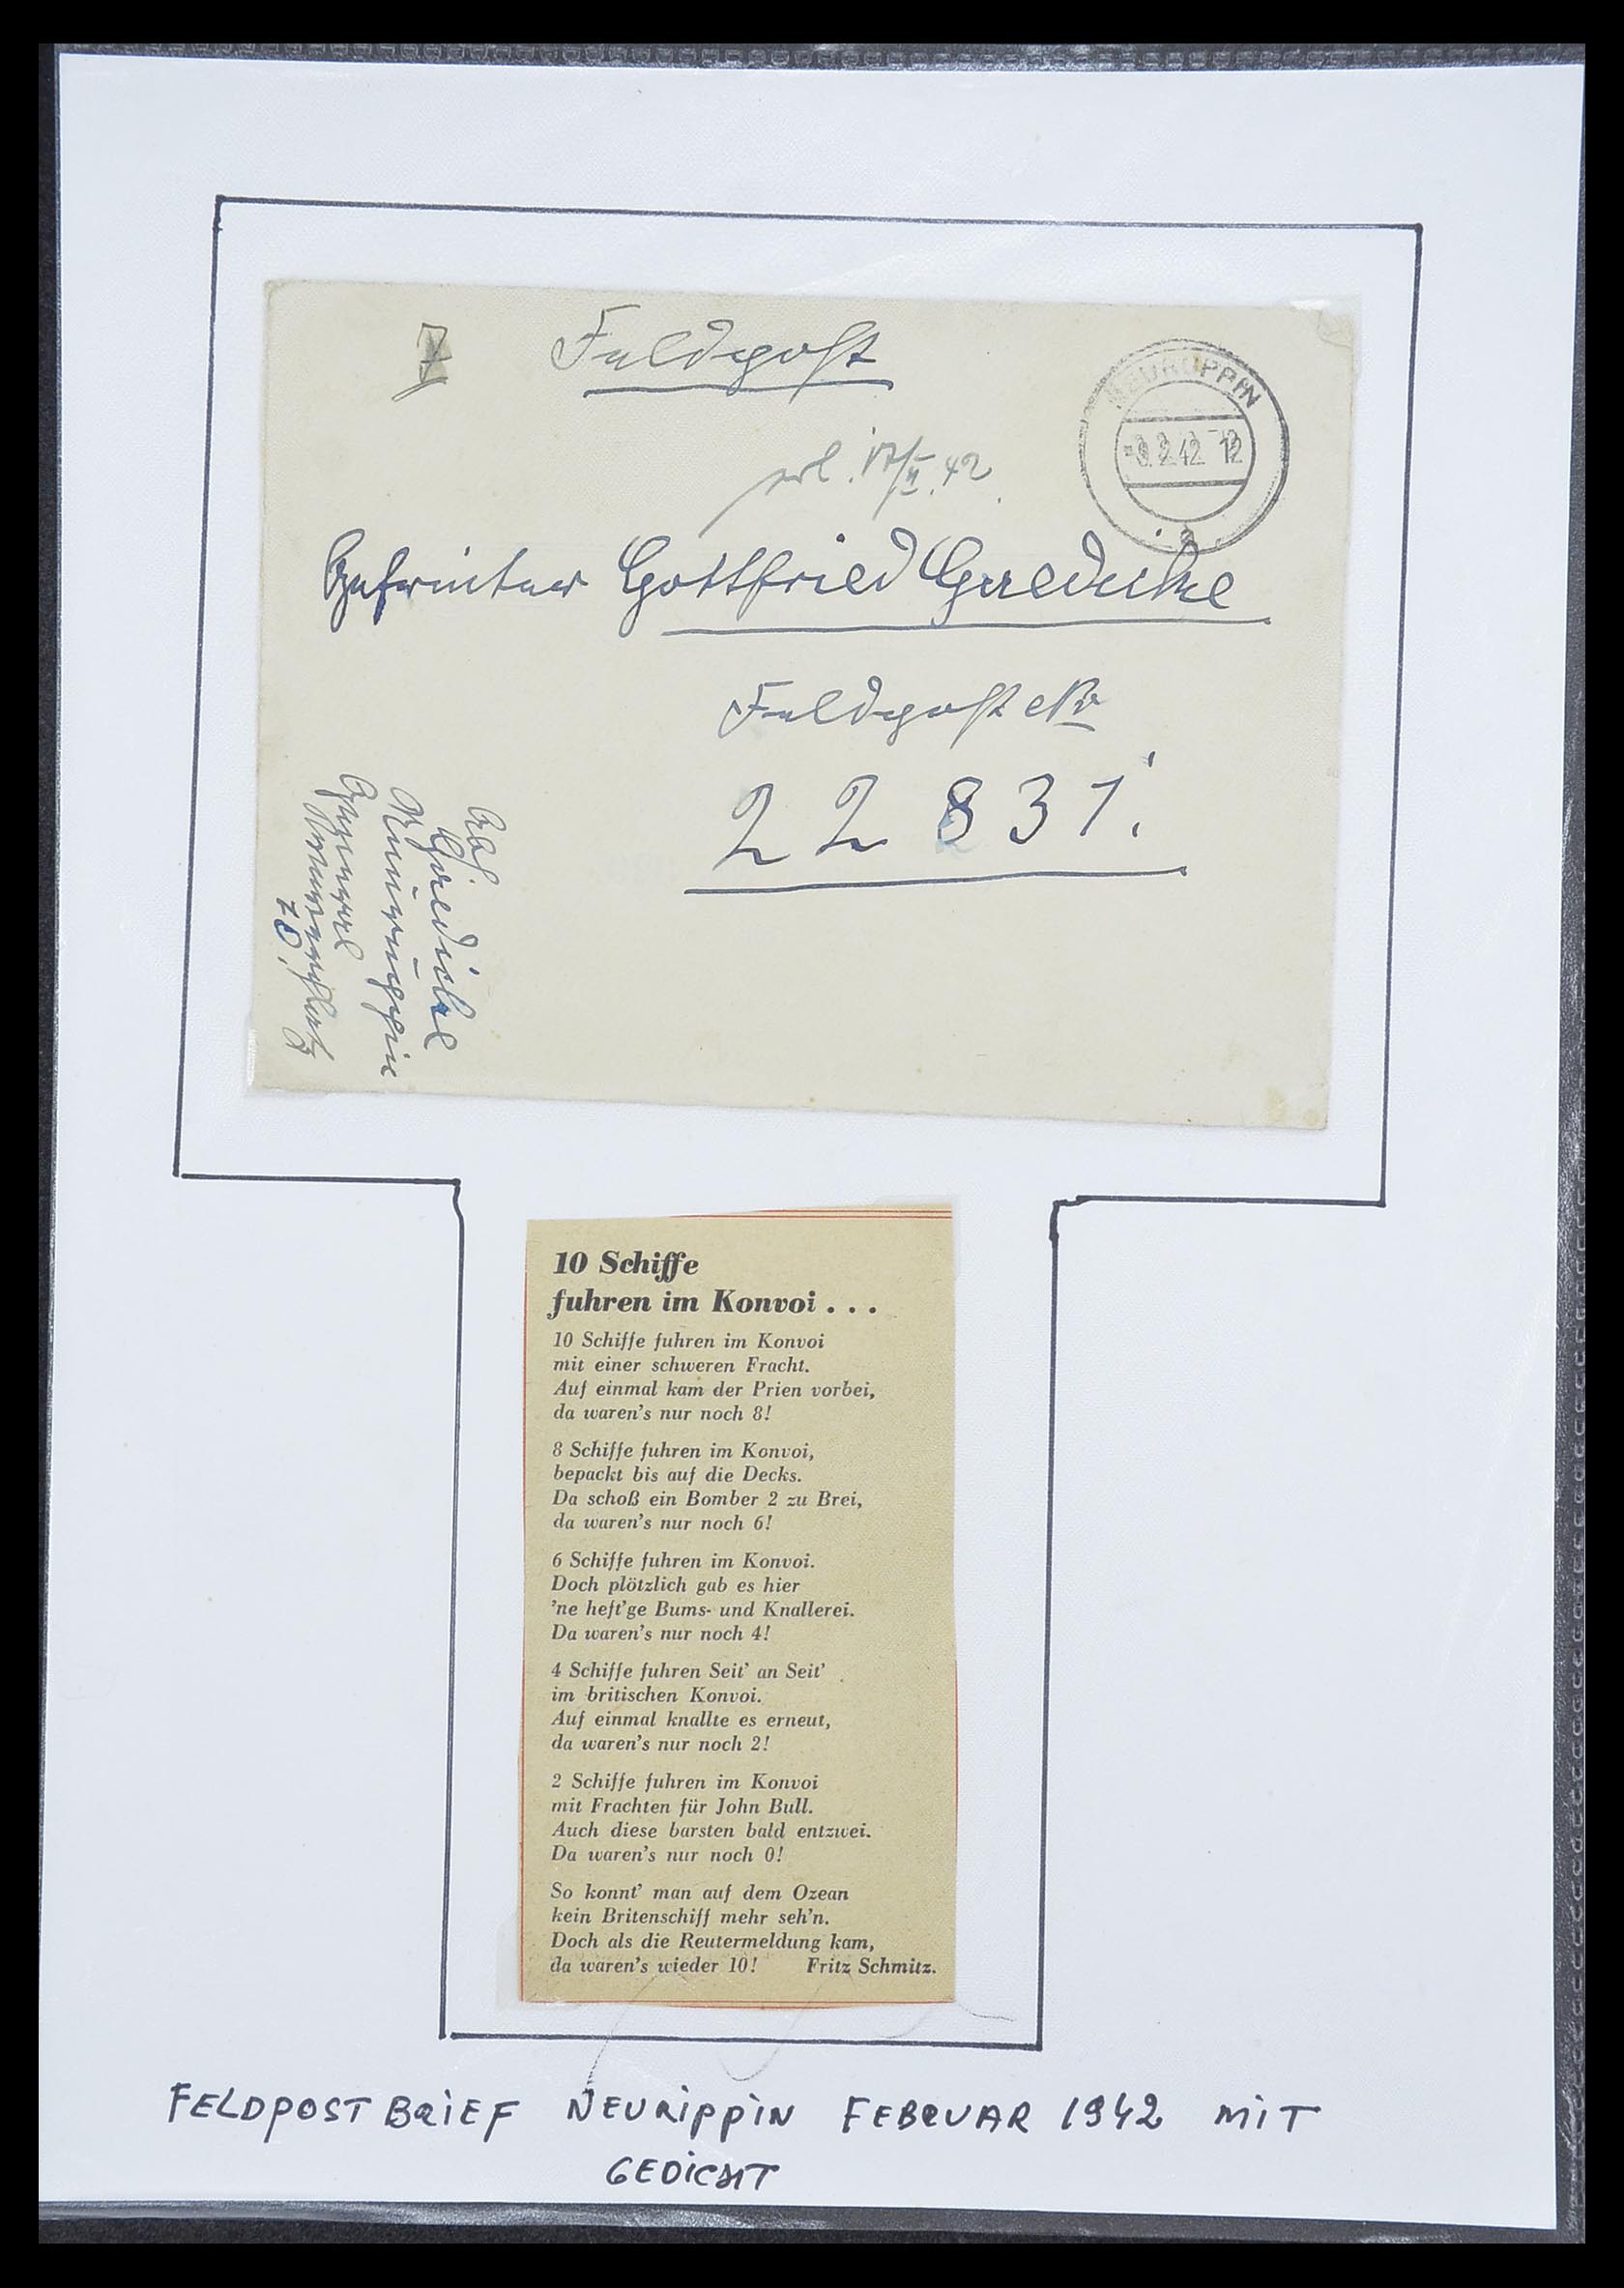 7
Feldpost
NEURUPPIN
-9.2.42 12
a
erl. 17/II.42
Gefreiter Gottfried Gaedicke
Feldpost No
22831.
Abs
Gaedicke
Neuruppin
70.
10 Schiffe
fuhren im Konvoi . . .
10 Schiffe fuhren im Konvoi
mit einer schweren Fracht.
Auf einmal kam der Prien vorbei,
da waren's nur noch 8!
8 Schiffe fuhren im Konvoi,
bepackt bis auf die Decks.
Da schoß ein Bomber 2 zu Brei,
da waren's nur noch 6!
6 Schiffe fuhren im Konvoi.
Doch plötzlich gab es hier
'ne heft'ge Bums- und Knallerei.
Da waren's nur noch 4!
4 Schiffe fuhren Seit' an Seit'
im britischen Konvoi.
Auf einmal knallte es erneut,
da waren's nur noch 2!
2 Schiffe fuhren im Konvoi
mit Frachten für John Bull.
Auch diese barsten bald entzwei.
Da waren's nur noch 0!
So konnt' man auf dem Ozean
kein Britenschiff mehr seh'n.
Doch als die Reutermeldung kam,
da waren's wieder 10! Fritz Schmitz.
FELDPOSTBRIEF NEURIPPIN FEBRUAR 1942 MIT
GEDICHT